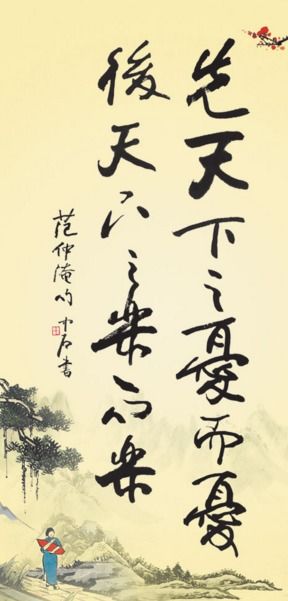 先天下之憂而憂
後天下之樂而樂
范仲淹句 中石書